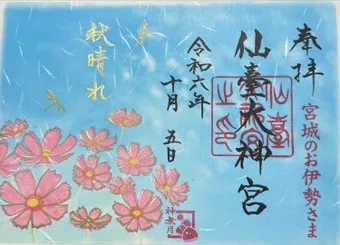 奉拝
宮城のお伊勢さま
仙臺大神宮
令和六年
十月五日
秋晴れ
神無月